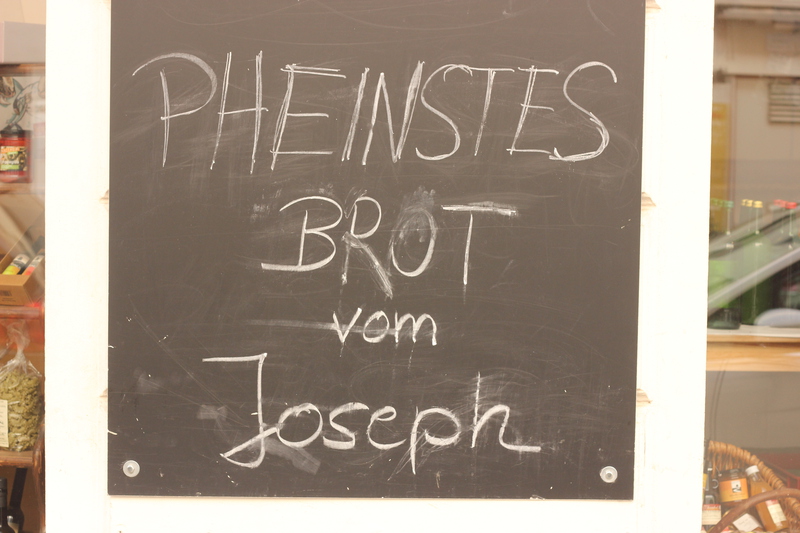 PHEINSTES
BROT
vom
Joseph